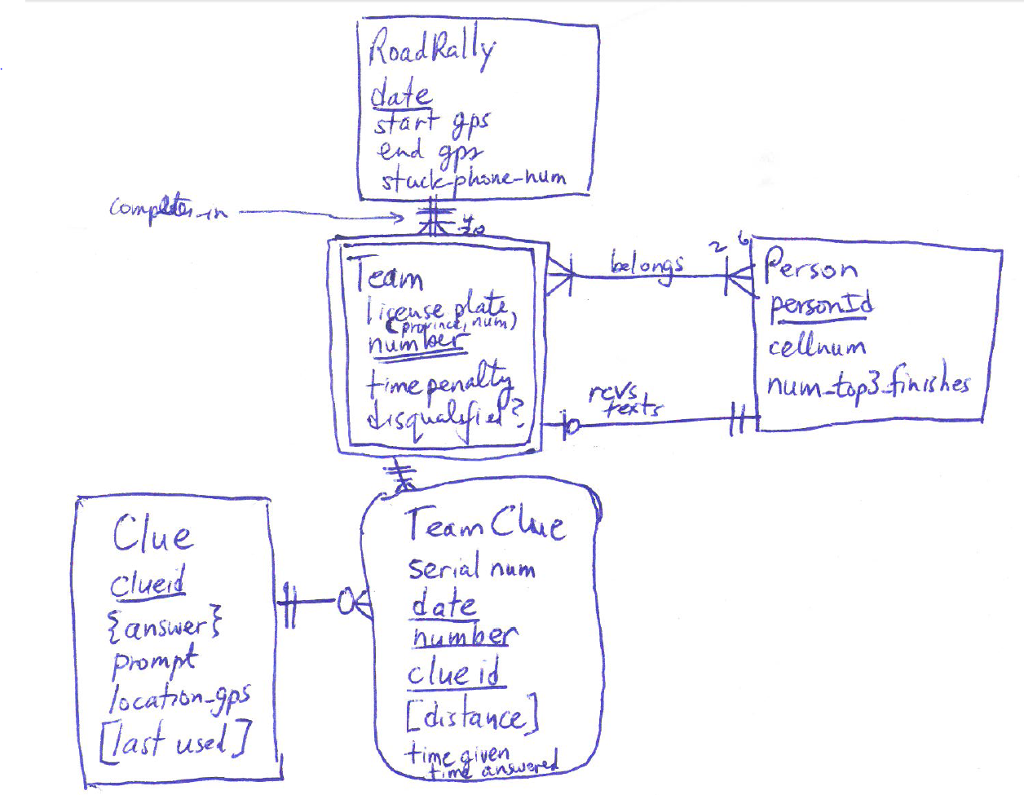 RoadRally
date
start gps
end gps
stuck-phone-num
Team
license plate
(province, num)
number
time penalty
disqualified?
belongs
2 6
Person
personId
cellnum
num_top3_finishes
rcvs
texts
Clue
clueid
{answer}
prompt
location_gps
[last used]
TeamClue
serial num
date
number
clue id
[distance]
time given
time answered